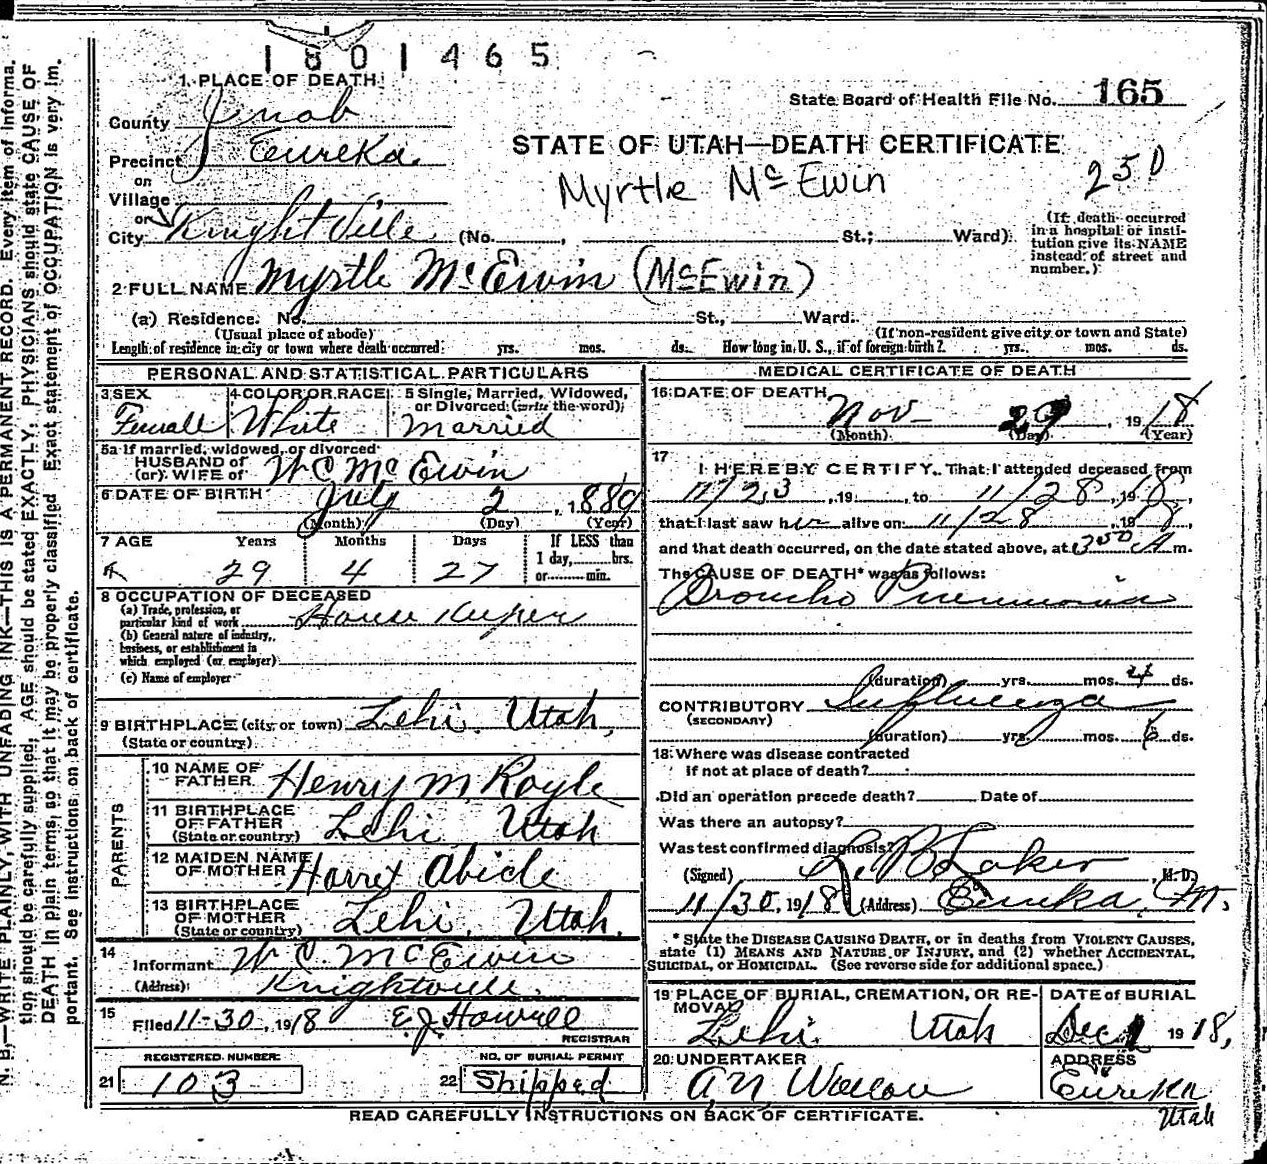 1801465
1. PLACE OF DEATH
State Board of Health File No. 165
County Juab
STATE OF UTAH—DEATH CERTIFICATE
Precinct Eureka
Myrtle McEwin 250
or
Village
or
City Knightville (No. , St.; Ward)
(If death occurred in a hospital or institution give its NAME instead of street and number.)
2 FULL NAME Myrtle McEwin (McEwin)
(a) Residence. No. St., Ward.
(Usual place of abode) (If non-resident give city or town and State)
Length of residence in city or town where death occurred yrs. mos. ds. How long in U. S., if of foreign birth? yrs. mos. ds.
PERSONAL AND STATISTICAL PARTICULARS
3 SEX Female
4 COLOR OR RACE White
5 Single, Married, Widowed, or Divorced (write the word) Married
5a If married, widowed, or divorced
HUSBAND of
(or) WIFE of W C McEwin
6 DATE OF BIRTH July 2, 1889
(Month) (Day) (Year)
7 AGE Years Months Days If LESS than
29 4 27 1 day, hrs.
or min.
8 OCCUPATION OF DECEASED
(a) Trade, profession, or
particular kind of work House Keeper
(b) General nature of industry,
business, or establishment in
which employed (or employer)
(c) Name of employer
9 BIRTHPLACE (city or town) Lehi, Utah,
(State or country)
PARENTS
10 NAME OF FATHER Henry M. Royle
11 BIRTHPLACE OF FATHER (State or country) Lehi Utah
12 MAIDEN NAME OF MOTHER
13 BIRTHPLACE OF MOTHER (State or country) Lehi, Utah.
14 Informant W C. McEwin
(Address) Knightville.
15 Filed 11-30, 1918 E. J. Howell
REGISTRAR
REGISTERED NUMBER NO. OF BURIAL PERMIT
21 103 22 Shipped
MEDICAL CERTIFICATE OF DEATH
16 DATE OF DEATH
Nov 29, 1918
(Month) (Day) (Year)
17 I HEREBY CERTIFY, That I attended deceased from
11/23, 19 , to 11/28, 1918,
that I last saw her alive on 11/28, 1918,
and that death occurred, on the date stated above, at 350 A m.
The CAUSE OF DEATH* was as follows:
Broncho Pneumonia
(duration) yrs. mos. 4 ds.
CONTRIBUTORY Influenza
(SECONDARY)
(duration) yrs. mos. 6 ds.
18 Where was disease contracted
if not at place of death?
Did an operation precede death? Date of
Was there an autopsy?
Was test confirmed diagnosis?
(Signed) , M.D.
11/30, 1918 (Address) Eureka,
* State the DISEASE CAUSING DEATH, or in deaths from VIOLENT CAUSES,
state (1) MEANS AND NATURE OF INJURY, and (2) whether ACCIDENTAL,
SUICIDAL, or HOMICIDAL. (See reverse side for additional space.)
19 PLACE OF BURIAL, CREMATION, OR REMOVAL DATE of BURIAL
Lehi. Utah Dec 1 1918,
20 UNDERTAKER ADDRESS
A. N. Eureka
Utah
READ CAREFULLY INSTRUCTIONS ON BACK OF CERTIFICATE.
N. B.—WRITE PLAINLY, WITH UNFADING INK—THIS IS A PERMANENT RECORD. Every item of informa-
tion should be carefully supplied. AGE should be stated EXACTLY. PHYSICIANS should state CAUSE OF
DEATH in plain terms, so that it may be properly classified. Exact statement of OCCUPATION is very im-
portant. See instructions on back of certificate.